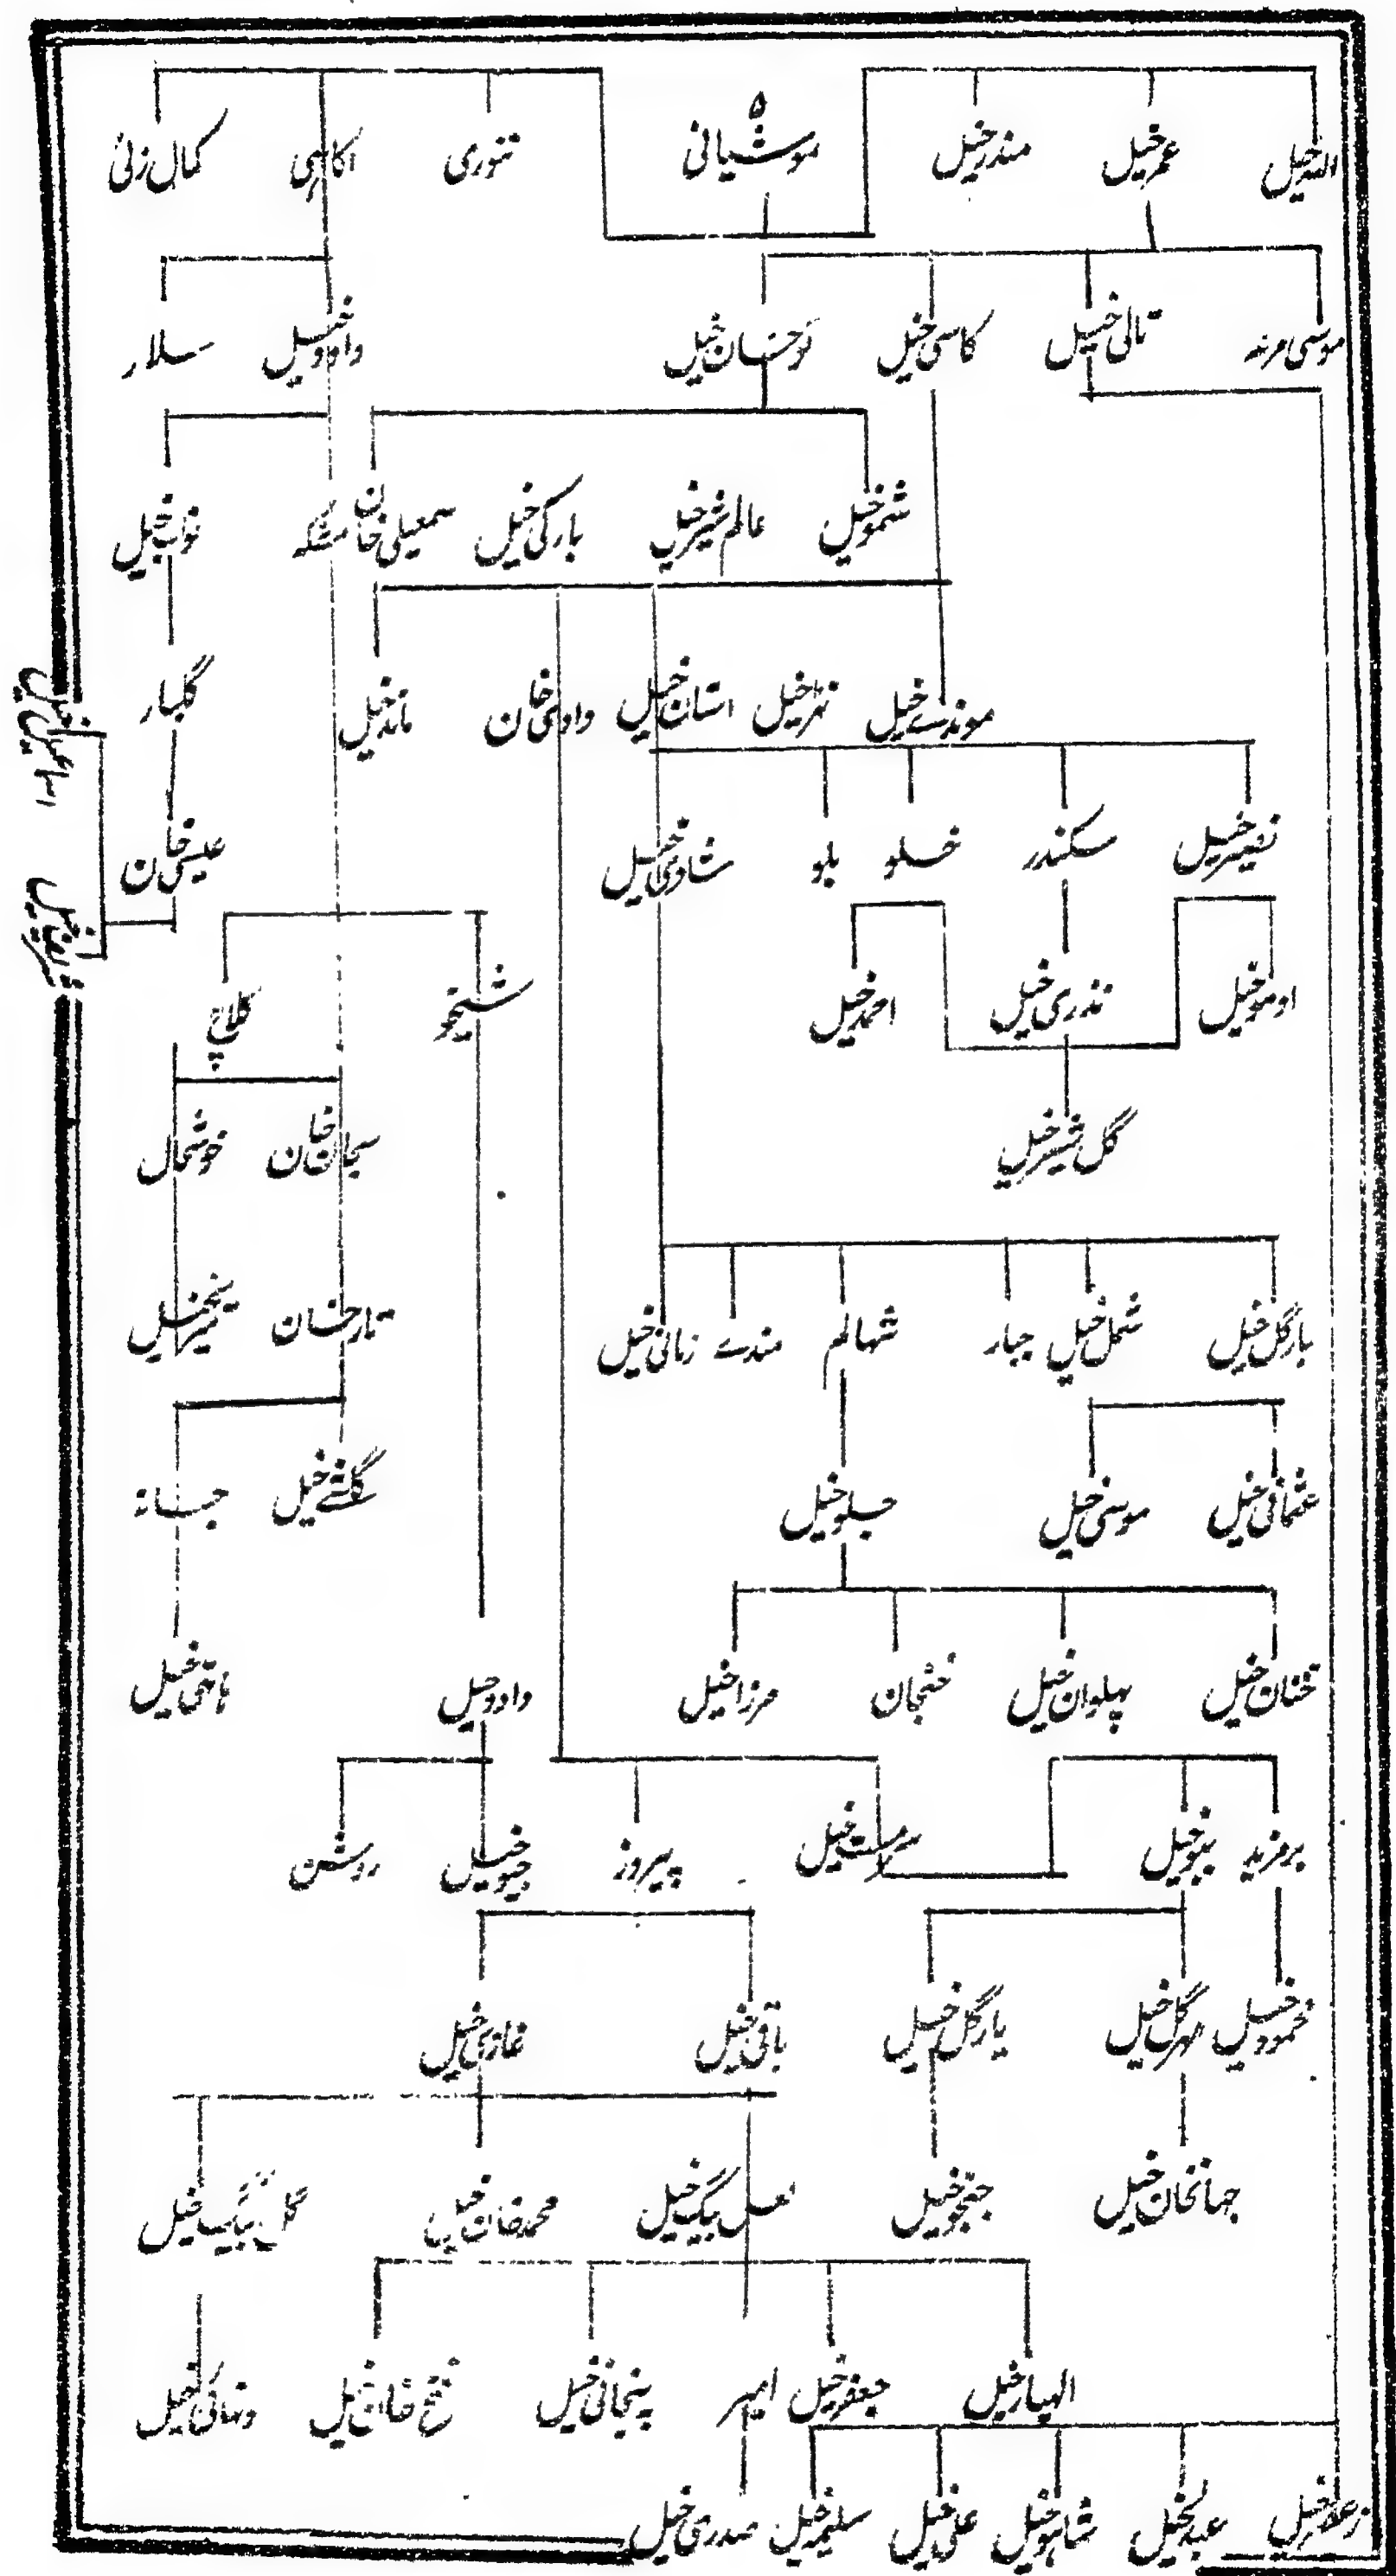 ۵
اللہ خیل عمر خیل مندر خیل موشیانی تنوری اکاہی کمال زئی
موسی مرنہ تالی خیل کاسی خیل نوحسان خیل داود خیل سلار
شمو خیل عالم شیر خیل بارکی خیل سمعیلی خان مشکہ خواب خیل
موندے خیل نہر خیل استان خیل داودی خان ماند خیل گلبار
نصیر خیل سکندر خسلو بلو شادی خیل عیسی خان
اومو خیل نذری خیل احمد خیل شیخو کلاچ
گل شیر خیل سبحان خان خوشحال
بارگل خیل شمل خیل جبار شہالم مندے زمانی خیل تارخسان میر خیل
عثمانی خیل موسی خیل جلو خیل گلشے خیل جسانہ
خنان خیل پہلوان خیل خنجان مرزا خیل داود خیل ہاتھی خیل
برمزید ببو خیل سرمست خیل پیروز جیو خیل روشن
محمود خیل مہر گل خیل یار گل خیل باقی خیل غازی خیل
جہانخان خیل جنجو خیل لعل بیگ خیل محمد خان خیل گل بیگ خیل
الہیار خیل جعفر خیل امیر پنجانی خیل فتح خان خیل
عبدل خیل شاہو خیل علی خیل سلیم خیل صدری خیل